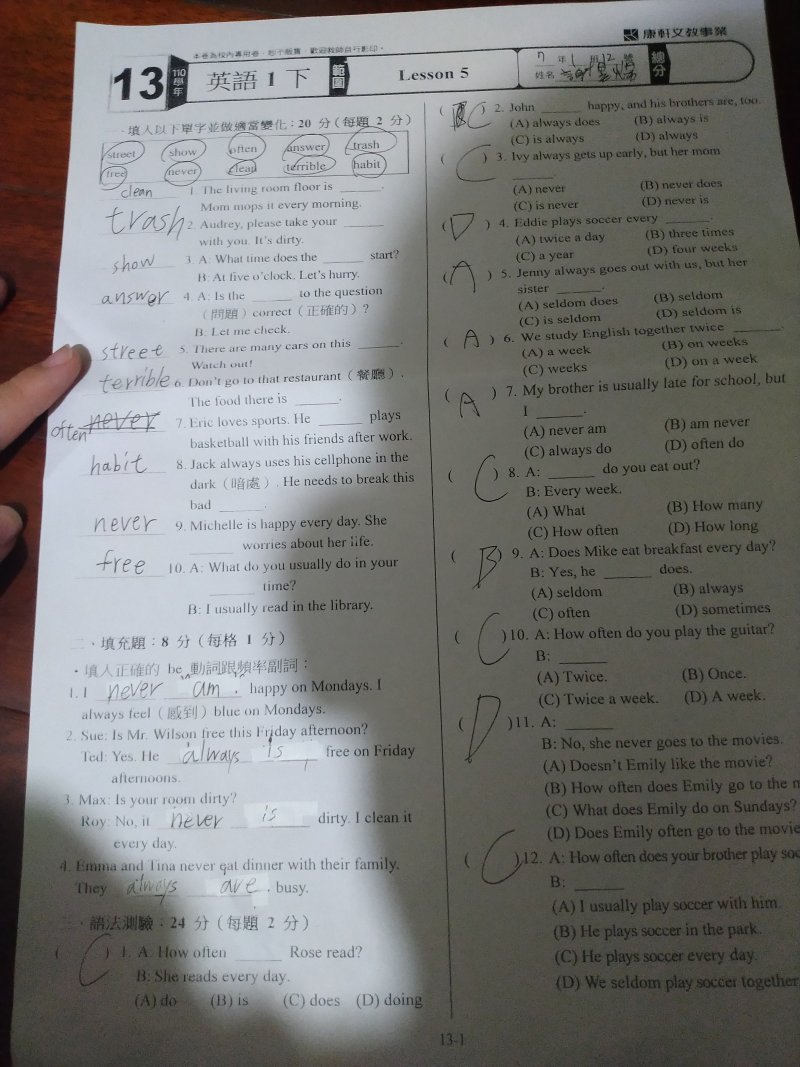 本卷為校內專用卷，恕不販售，歡迎教師自行影印。
康軒文教事業
13
110學年
英語 1 下
範圍
Lesson 5
7 年 1 班 12 號
姓名
總分
一、填入以下單字並做適當變化：20 分（每題 2 分）
street show often answer trash
free never clean terrible habit
clean 1. The living room floor is ______.
Mom mops it every morning.
trash 2. Audrey, please take your ______
with you. It's dirty.
show 3. A: What time does the ______ start?
B: At five o'clock. Let's hurry.
answer 4. A: Is the ______ to the question
（問題）correct（正確的）?
B: Let me check.
street 5. There are many cars on this ______.
Watch out!
terrible 6. Don't go to that restaurant（餐廳）.
The food there is ______.
often never 7. Eric loves sports. He ______ plays
basketball with his friends after work.
habit 8. Jack always uses his cellphone in the
dark（暗處）. He needs to break this
bad ______.
never 9. Michelle is happy every day. She
______ worries about her life.
free 10. A: What do you usually do in your
______ time?
B: I usually read in the library.
二、填充題：8 分（每格 1 分）
・填入正確的 be 動詞跟頻率副詞：
1. I never am . happy on Mondays. I
always feel（感到）blue on Mondays.
2. Sue: Is Mr. Wilson free this Friday afternoon?
Ted: Yes. He always is free on Friday
afternoons.
3. Max: Is your room dirty?
Roy: No, it never is dirty. I clean it
every day.
4. Emma and Tina never eat dinner with their family.
They always are . busy.
三、語法測驗：24 分（每題 2 分）
( C ) 1. A: How often ______ Rose read?
B: She reads every day.
(A) do (B) is (C) does (D) doing
( C ) 2. John ______ happy, and his brothers are, too.
(A) always does (B) always is
(C) is always (D) always
( C ) 3. Ivy always gets up early, but her mom
______.
(A) never (B) never does
(C) is never (D) never is
( D ) 4. Eddie plays soccer every ______.
(A) twice a day (B) three times
(C) a year (D) four weeks
( A ) 5. Jenny always goes out with us, but her
sister ______.
(A) seldom does (B) seldom
(C) is seldom (D) seldom is
( A ) 6. We study English together twice ______.
(A) a week (B) on weeks
(C) weeks (D) on a week
( A ) 7. My brother is usually late for school, but
I ______.
(A) never am (B) am never
(C) always do (D) often do
( C ) 8. A: ______ do you eat out?
B: Every week.
(A) What (B) How many
(C) How often (D) How long
( B ) 9. A: Does Mike eat breakfast every day?
B: Yes, he ______ does.
(A) seldom (B) always
(C) often (D) sometimes
( C ) 10. A: How often do you play the guitar?
B: ______
(A) Twice. (B) Once.
(C) Twice a week. (D) A week.
( D ) 11. A: ______
B: No, she never goes to the movies.
(A) Doesn't Emily like the movie?
(B) How often does Emily go to the
(C) What does Emily do on Sundays?
(D) Does Emily often go to the movie
( C ) 12. A: How often does your brother play
B: ______
(A) I usually play soccer with him.
(B) He plays soccer in the park.
(C) He plays soccer every day.
(D) We seldom play soccer together
13-1